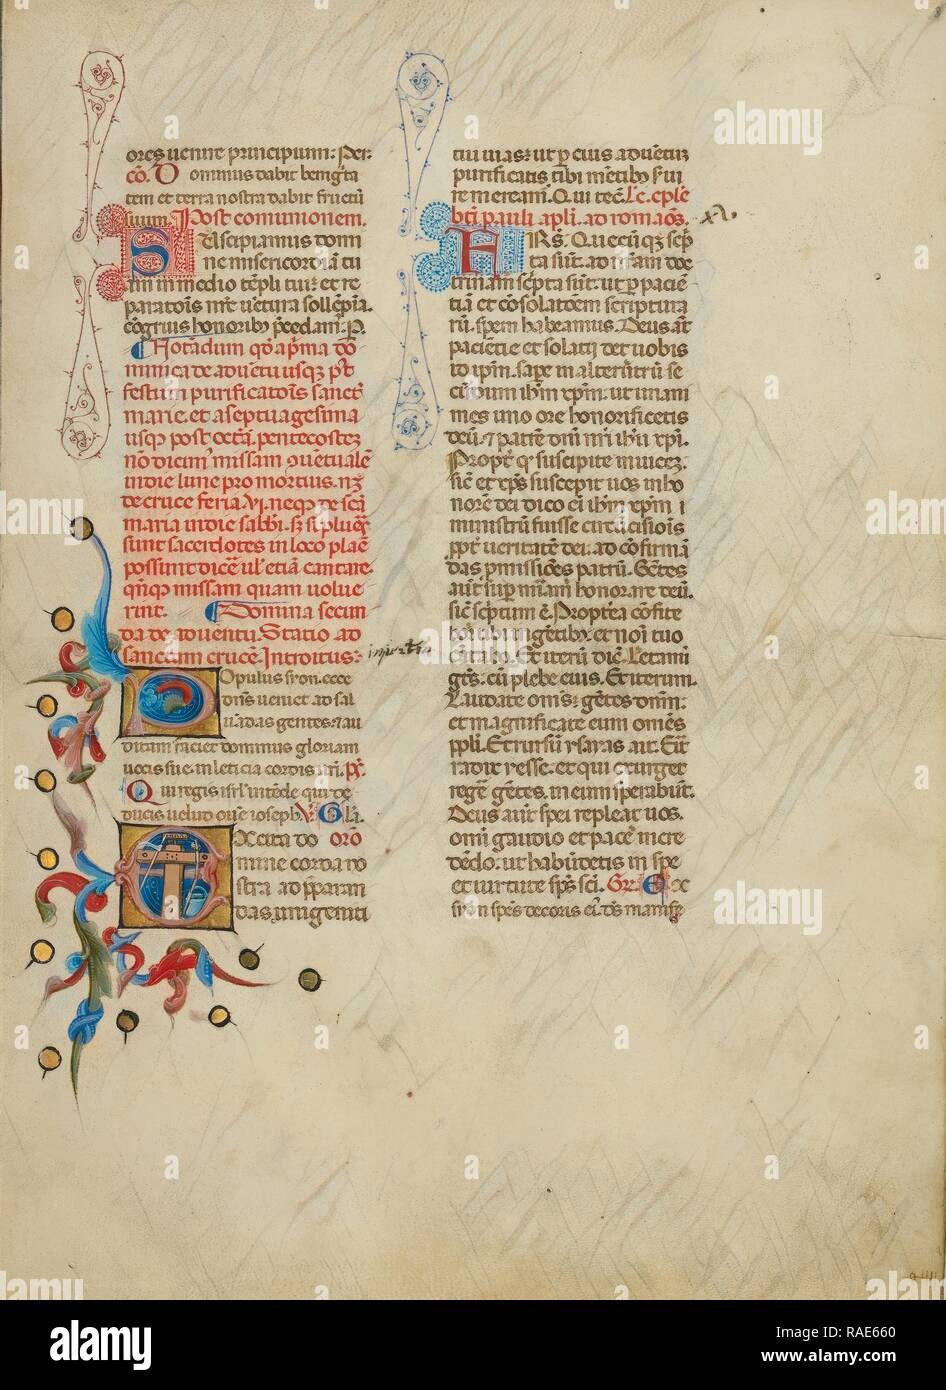 ores uenire principium: Per:
cō. Dominus dabit benigita
tem et terra nostra dabit fructū
suum. Post communionem.
Suscipiamus domi
ne misericordiā tu
am in medio tēpli tui: et re
paratōis nr̄e uētura sollēpnia
cōgruis honoribꝫ p̄cedam. P.
Notādum qđ a p̄ma do
minica de aduētu usqꝫ post
festum purificatōis sancte
marie. et a septuagesima
usqꝫ post octā. pentecostes
nō dicim' missam 9uētualē
in die lune pro mortuis. nꝫ
de cruce feria. vi. neqꝫ de scā
maria in die sabbi. sꝫ si plures
sunt sacerdotes in loco p̄lae
possunt dicē ul' etiā cantare
q̄nqꝫ missam quam uolue
rint. Domina secun
da de aduentu. Statio ad
sanctam crucē. Introitus:
Populus sion. ecce
dn̄s ueniet ad sal
uādas gentes: ⁊ au
ditam faciet dominus gloriam
uocis sue. in leticia cordis uri. ps.
Qui regis isrl' intēde qui de
ducis uelud ouē ioseph. V. Gl'a.
Excita do orō
mine corda no
stra ad p̄paran
das unigeniti
tui uias: ut p eius aduētū
purificatis tibi mētibꝫ s'ui
re meream. Qui tec̄. Lc. ep̄le
bt̄i pauli apl'i. ad romaōs. xv.
FRS. Quecūqꝫ sc̄p
ta sūt. ad nr̄am doc
trinam sc̄pta sūt: ut p paciē
tiā et cōsolatōem scriptura
rū. spem habeamus. Deus aūt
paciētie et solatij det uobis
id ip̄m. sape in alterutrū se
cūdum ih̄m xp̄m. ut unani
mes uno ore honorificetis
deū. ⁊ patrē dn̄i nr̄i ih̄u xp̄i.
Propt' qđ suscipite inuicē:
sic̄ et xp̄s suscepit uos in ho
norē dei dico ei ih̄m xp̄m i
ministrū fuisse circūcisiōis
ppt' ueritatē dei. ad cōfirmā
das p̄missiōes patrū. Gētes
aūt sup mīam honorare deū.
sic̄ sc̄ptum ē. Proptēa cōfite
bor tibi in gētibꝫ. et noī tuo
cātabo. Et iterū dic̄. Letami
gēs. cū plebe eius. Et iterum.
Laudate om̄s gētes dnm̄:
et magnificate eum omēs
ppl'i. Et rursū ysayas ait. Erit
radix yesse. et qui exurget
regē gētes. in eum sperabūt.
Deus aūt spei repleat uos.
omī gaudio et pacē in cre
dēdo. ut habūdetis in spe
et uirtute sp̄s sc̄i. Gr. Ex
sion sp̄es decoris ei'. đs manife
alamy
Image ID: RAE660
www.alamy.com